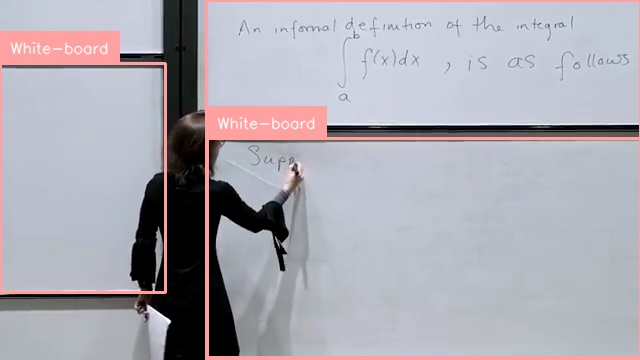 White-board
An informal definition of the integral
∫_a^b f(x)dx , is as follows
White-board
Supp